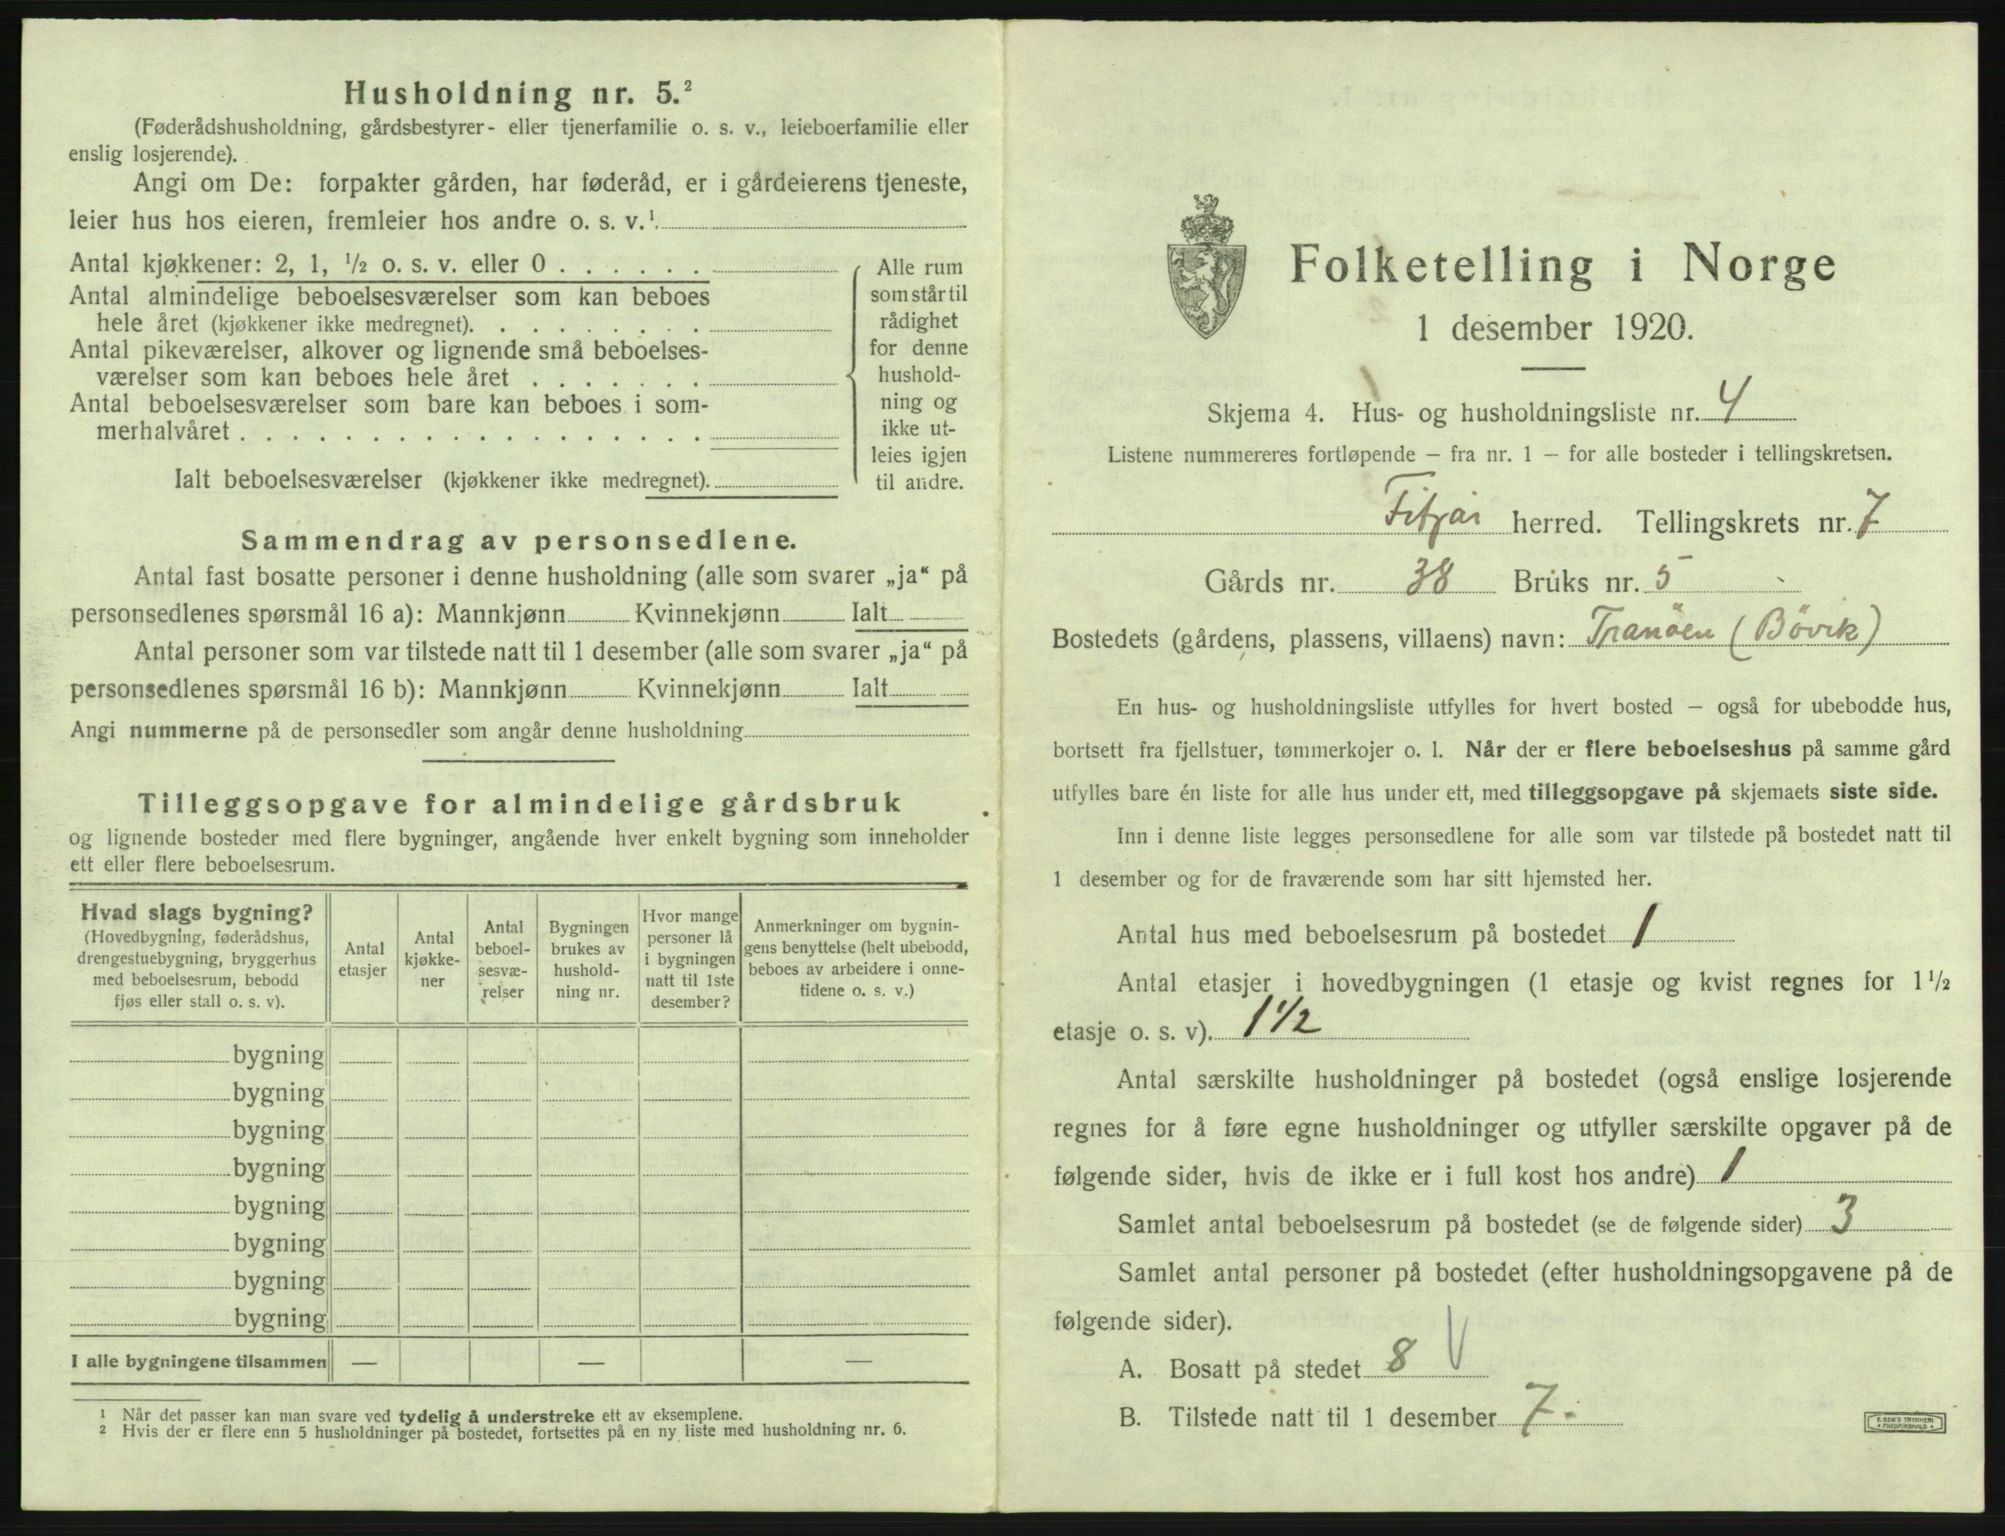 Husholdning nr. 5.²
(Føderådshusholdning, gårdsbestyrer- eller tjenerfamilie o. s. v., leieboerfamilie eller
enslig losjerende).
Angi om De: forpakter gården, har føderåd, er i gårdeierens tjeneste,
leier hus hos eieren, fremleier hos andre o. s. v.¹
Antal kjøkkener: 2, 1, ½ o. s. v. eller 0 . . . . . .
Antal almindelige beboelsesværelser som kan beboes
hele året (kjøkkener ikke medregnet). . . . . . . . .
Antal pikeværelser, alkover og lignende små beboelses-
værelser som kan beboes hele året . . . . . . .
Antal beboelsesværelser som bare kan beboes i som-
merhalvåret . . . . . . . . . . . . . . . . .
Ialt beboelsesværelser (kjøkkener ikke medregnet).
Alle rum
som står til
rådighet
for denne
hushold-
ning og
ikke ut-
leies igjen
til andre.
Sammendrag av personsedlene.
Antal fast bosatte personer i denne husholdning (alle som svarer „ja“ på
personsedlenes spørsmål 16 a): Mannkjønn Kvinnekjønn Ialt
Antal personer som var tilstede natt til 1 desember (alle som svarer „ja“ på
personsedlenes spørsmål 16 b): Mannkjønn Kvinnekjønn Ialt
Angi nummerne på de personsedler som angår denne husholdning
Tilleggsopgave for almindelige gårdsbruk
og lignende bosteder med flere bygninger, angående hver enkelt bygning som inneholder
ett eller flere beboelsesrum.
Hvad slags bygning?
(Hovedbygning, føderådshus,
drengestuebygning, bryggerhus
med beboelsesrum, bebodd
fjøs eller stall o. s. v).
Antal
etasjer
Antal
kjøkke-
ner
Antal
beboel-
sesvæ-
relser
Bygningen
brukes av
hushold-
ning nr.
Hvor mange
personer lå
i bygningen
natt til 1ste
desember?
Anmerkninger om bygnin-
gens benyttelse (helt ubebodd,
beboes av arbeidere i onne-
tidene o. s. v.)
bygning
bygning
bygning
bygning
bygning
bygning
bygning
bygning
I alle bygningene tilsammen — — —
¹ Når det passer kan man svare ved tydelig å understreke ett av eksemplene.
² Hvis der er flere enn 5 husholdninger på bostedet, fortsettes på en ny liste med husholdning nr. 6.
Folketelling i Norge
1 desember 1920.
Skjema 4. Hus- og husholdningsliste nr. 4
Listene nummereres fortløpende – fra nr. 1 – for alle bosteder i tellingskretsen.
Fitjar herred. Tellingskrets nr. 7
Gårds nr. 38 Bruks nr. 5
Bostedets (gårdens, plassens, villaens) navn: Tranöen (Bövik)
En hus- og husholdningsliste utfylles for hvert bosted – også for ubebodde hus,
bortsett fra fjellstuer, tømmerkojer o. l. Når der er flere beboelseshus på samme gård
utfylles bare én liste for alle hus under ett, med tilleggsopgave på skjemaets siste side.
Inn i denne liste legges personsedlene for alle som var tilstede på bostedet natt til
1 desember og for de fraværende som har sitt hjemsted her.
Antal hus med beboelsesrum på bostedet 1
Antal etasjer i hovedbygningen (1 etasje og kvist regnes for 1½
etasje o. s. v). 1½
Antal særskilte husholdninger på bostedet (også enslige losjerende
regnes for å føre egne husholdninger og utfyller særskilte opgaver på de
følgende sider, hvis de ikke er i full kost hos andre) 1
Samlet antal beboelsesrum på bostedet (se de følgende sider) 3
Samlet antal personer på bostedet (efter husholdningsopgavene på de
følgende sider).
A. Bosatt på stedet 8 V
B. Tilstede natt til 1 desember 7.
E. SEM'S TRYKKERI
FREDRIKSHALD